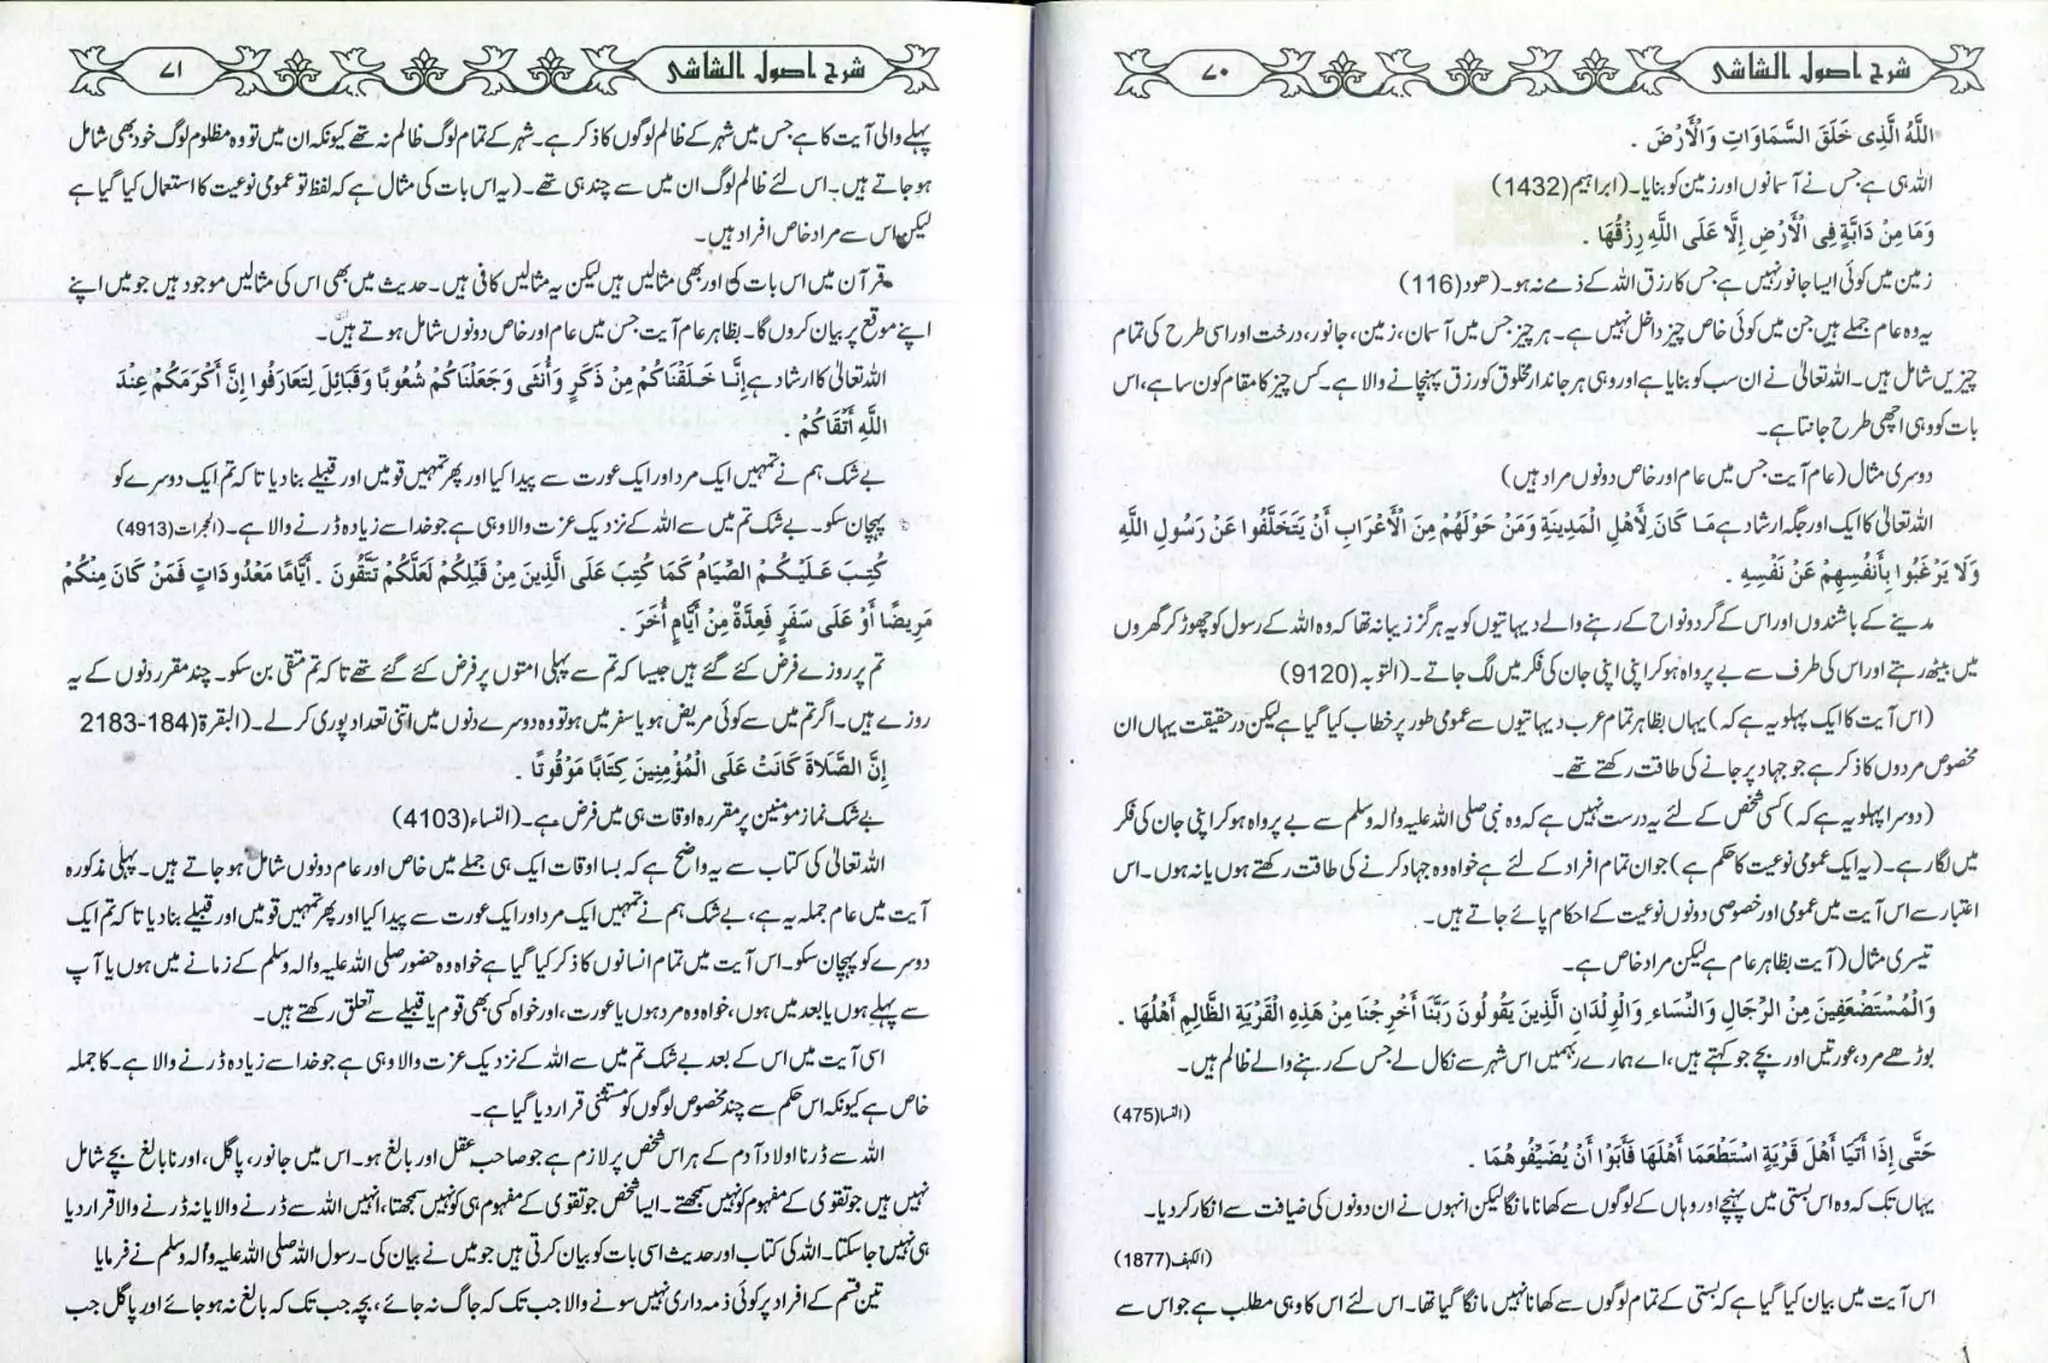 شرح اصول الشاشی
۷۰
اللَّهُ الَّذِی خَلَقَ السَّمَاوَاتِ وَالْأَرْضَ .
اللہ ہی ہے جس نے آسمانوں اور زمین کو بنایا۔ (ابراہیم(1432)
وَمَا مِنْ دَابَّةٍ فِی الْأَرْضِ إِلَّا عَلَى اللَّهِ رِزْقُهَا .
زمین میں کوئی ایسا جانور نہیں ہے جس کا رزق اللہ کے ذمے نہ ہو۔ (ھود(116)
یہ وہ عام جملے ہیں جن میں کوئی خاص چیز داخل نہیں ہے۔ ہر چیز جس میں آسمان، زمین، جانور، درخت اور اسی طرح کی تمام
چیزیں شامل ہیں۔ اللہ تعالیٰ نے ان سب کو بنایا ہے اور وہی ہر جاندار مخلوق کو رزق پہنچانے والا ہے۔ کس چیز کا مقام کون سا ہے، اس
بات کو وہی اچھی طرح جانتا ہے۔
دوسری مثال (عام آیت جس میں عام اور خاص دونوں مراد ہیں)
اللہ تعالیٰ کا ایک اور جگہ ارشاد ہے مَا كَانَ لِأَهْلِ الْمَدِينَةِ وَمَنْ حَوْلَهُمْ مِنَ الْأَعْرَابِ أَنْ يَتَخَلَّفُوا عَنْ رَسُولِ اللَّهِ
وَلَا يَرْغَبُوا بِأَنْفُسِهِمْ عَنْ نَفْسِهِ .
مدینے کے باشندوں اور اس کے گرد و نواح کے رہنے والے دیہاتیوں کو یہ ہرگز زیبا نہ تھا کہ وہ اللہ کے رسول کو چھوڑ کر گھروں
میں بیٹھ رہتے اور اس کی طرف سے بے پرواہ ہو کر اپنی اپنی جان کی فکر میں لگ جاتے۔ (التوبہ(9120)
(اس آیت کا ایک پہلو یہ ہے کہ) یہاں بظاہر تمام عرب دیہاتیوں سے عمومی طور پر خطاب کیا گیا ہے لیکن در حقیقت یہاں ان
مخصوص مردوں کا ذکر ہے جو جہاد پر جانے کی طاقت رکھتے تھے۔
(دوسرا پہلو یہ ہے کہ) کسی شخص کے لئے یہ درست نہیں ہے کہ وہ نبی صلی اللہ علیہ والہ وسلم سے بے پرواہ ہو کر اپنی جان کی فکر
میں لگا رہے۔ (یہ ایک عمومی نوعیت کا حکم ہے) جو ان تمام افراد کے لئے ہے خواہ وہ جہاد کرنے کی طاقت رکھتے ہوں یا نہ ہوں۔ اس
اعتبار سے اس آیت میں عمومی اور خصوصی دونوں نوعیت کے احکام پائے جاتے ہیں۔
تیسری مثال (آیت بظاہر عام ہے لیکن مراد خاص ہے۔
وَالْمُسْتَضْعَفِينَ مِنْ الرِّجَالِ وَالنِّسَاءِ وَالْوِلْدَانِ الَّذِينَ يَقُولُونَ رَبَّنَا أَخْرِجْنَا مِنْ هَذِهِ الْقَرْيَةِ الظَّالِمِ أَهْلُهَا .
بوڑھے مرد، عورتیں اور بچے جو کہتے ہیں، اے ہمارے رب ہمیں اس شہر سے نکال لے جس کے رہنے والے ظالم ہیں۔
(النسا(475)
حَتَّى إِذَا أَتَيَا أَهْلَ قَرْيَةٍ اسْتَطْعَمَا أَهْلَهَا فَأَبَوْا أَنْ يُضَيِّفُوهُمَا .
یہاں تک کہ وہ اس بستی میں پہنچے اور وہاں کے لوگوں سے کھانا مانگا لیکن انہوں نے ان دونوں کی ضیافت سے انکار کر دیا۔
(الکہف(1877)
اس آیت میں بیان کیا گیا ہے کہ بستی کے تمام لوگوں سے کھانا نہیں مانگا گیا تھا۔ اس لئے اس کا وہی مطلب ہے جو اس سے
شرح اصول الشاشی
۷۱
پہلے والی آیت کا ہے جس میں شہر کے ظالم لوگوں کا ذکر ہے۔ شہر کے تمام لوگ ظالم نہ تھے کیونکہ ان میں تو وہ مظلوم لوگ خود بھی شامل
ہو جاتے ہیں۔ اس لئے ظالم لوگ ان میں سے چند ہی تھے۔ (یہ اس بات کی مثال ہے کہ لفظ تو عمومی نوعیت کا استعمال کیا گیا ہے
لیکن اس سے مراد خاص افراد ہیں۔
قرآن میں اس بات کی اور بھی مثالیں ہیں لیکن یہ مثالیں کافی ہیں۔ حدیث میں بھی اس کی مثالیں موجود ہیں جو میں اپنے
اپنے موقع پر بیان کروں گا۔ بظاہر عام آیت جس میں عام اور خاص دونوں شامل ہوتے ہیں۔
اللہ تعالیٰ کا ارشاد ہے إِنَّا خَلَقْنَاكُمْ مِنْ ذَكَرٍ وَأُنْثَى وَجَعَلْنَاكُمْ شُعُوبًا وَقَبَائِلَ لِتَعَارَفُوا إِنَّ أَكْرَمَكُمْ عِنْدَ
اللَّهِ أَتْقَاكُمْ .
بے شک ہم نے تمہیں ایک مرد اور ایک عورت سے پیدا کیا اور پھر تمہیں قومیں اور قبیلے بنا دیا تا کہ تم ایک دوسرے کو
پہچان سکو۔ بے شک تم میں سے اللہ کے نزدیک عزت والا وہی ہے جو خدا سے زیادہ ڈرنے والا ہے۔ (الحجرات(4913)
كُتِبَ عَلَيْكُمْ الصِّيَامُ كَمَا كُتِبَ عَلَى الَّذِينَ مِنْ قَبْلِكُمْ لَعَلَّكُمْ تَتَّقُونَ . أَيَّامًا مَعْدُودَاتٍ فَمَنْ كَانَ مِنْكُمْ
مَرِيضًا أَوْ عَلَى سَفَرٍ فَعِدَّةٌ مِنْ أَيَّامٍ أُخَرَ .
تم پر روزے فرض کئے گئے ہیں جیسا کہ تم سے پہلی امتوں پر فرض کئے گئے تھے تا کہ تم متقی بن سکو۔ چند مقرر دنوں کے یہ
روزے ہیں۔ اگر تم میں سے کوئی مریض ہو یا سفر میں ہو تو وہ دوسرے دنوں میں اتنی تعداد پوری کر لے۔ (البقرۃ(184-2183
إِنَّ الصَّلَاةَ كَانَتْ عَلَى الْمُؤْمِنِينَ كِتَابًا مَوْقُوتًا .
بے شک نماز مومنین پر مقررہ اوقات ہی میں فرض ہے۔ (النساء(4103)
اللہ تعالیٰ کی کتاب سے یہ واضح ہے کہ بسا اوقات ایک ہی جملے میں خاص اور عام دونوں شامل ہو جاتے ہیں۔ پہلی مذکورہ
آیت میں عام جملہ یہ ہے، بے شک ہم نے تمہیں ایک مرد اور ایک عورت سے پیدا کیا اور پھر تمہیں قومیں اور قبیلے بنا دیا تا کہ تم ایک
دوسرے کو پہچان سکو۔ اس آیت میں تمام انسانوں کا ذکر کیا گیا ہے خواہ وہ حضور صلی اللہ علیہ والہ وسلم کے زمانے میں ہوں یا آپ
سے پہلے ہوں یا بعد میں ہوں، خواہ وہ مرد ہوں یا عورت، اور خواہ کسی بھی قوم یا قبیلے سے تعلق رکھتے ہیں۔
اسی آیت میں اس کے بعد بے شک تم میں سے اللہ کے نزدیک عزت والا وہی ہے جو خدا سے زیادہ ڈرنے والا ہے۔ کا جملہ
خاص ہے کیونکہ اس حکم سے چند مخصوص لوگوں کو مستثنی قرار دیا گیا ہے۔
اللہ سے ڈرنا اولاد آدم کے ہر اس شخص پر لازم ہے جو صاحب عقل اور بالغ ہو۔ اس میں جانور، پاگل، اور نا بالغ بچے شامل
نہیں ہیں جو تقوی کے مفہوم کو نہیں سمجھتے۔ ایسا شخص جو تقوی کے مفہوم ہی کو نہیں سمجھتا، انہیں اللہ سے ڈرنے والا یا نہ ڈرنے والا قرار دیا
ہی نہیں جا سکتا۔ اللہ کی کتاب اور حدیث اسی بات کو بیان کرتی ہیں جو میں نے بیان کی۔ رسول اللہ صلی اللہ علیہ والہ وسلم نے فرمایا
تین قسم کے افراد پر کوئی ذمہ داری نہیں سونے والا جب تک کہ جاگ نہ جائے، بچہ جب تک کہ بالغ نہ ہو جائے اور پاگل جب